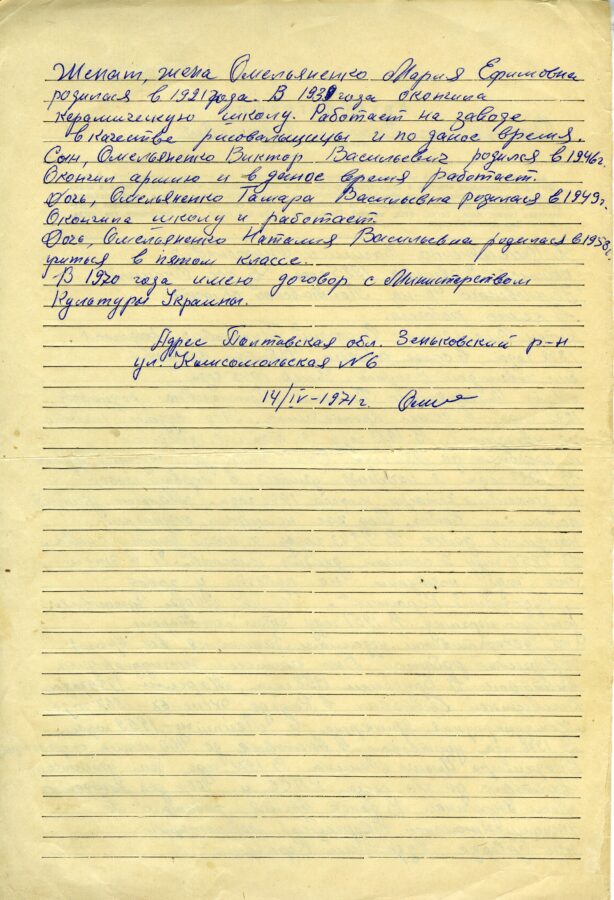 Женат, жена Омельяненко Мария Ефимовна
родилася в 1921 года. В 193 года окончила
керамическую школу. Работает на заводе
в качестве рисовальщицы и по даное время.
Сын, Омельяненко Виктор Васильевич родился в 1946г.
Окончил армию и в даное время работает.
Дочь, Омельяненко Тамара Васильевна родилася в 1949г.
Окончила школу и работает.
Дочь, Омельяненко Наталия Васильевна родилася в 1958г.
учиться в пятом классе.
В 1970 года имею договор с Министерством
Культуры Украины.
Адрес Полтавская обл. Зеньковский р-н
ул. Комсомольская №6
14/IV-1971г.